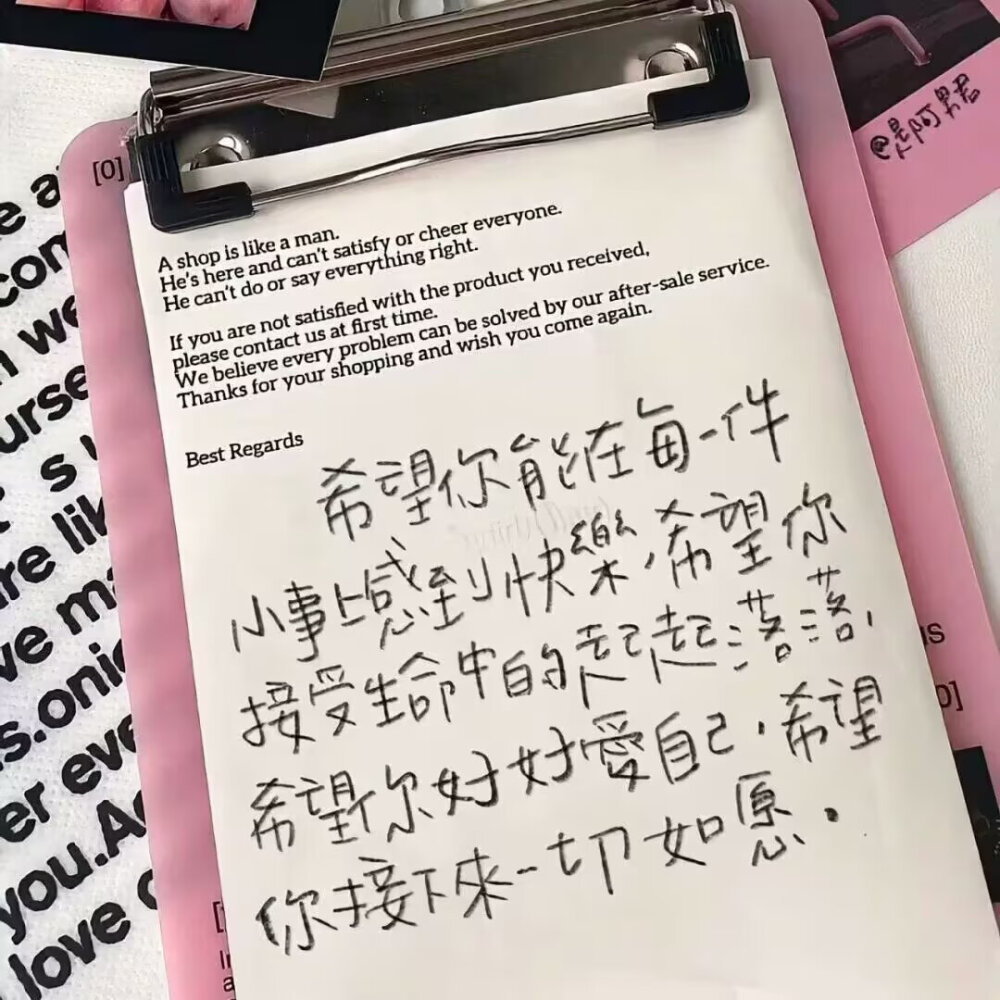 [0]
@是阿君
A shop is like a man.
He's here and can't satisfy or cheer everyone.
He can't do or say everything right.
If you are not satisfied with the product you received,
please contact us at first time.
We believe every problem can be solved by our after-sale service.
Thanks for your shopping and wish you come again.
Best Regards
希望你能在每一件
小事上感到快樂,希望你
接受生命中的起起落落,
希望你好好愛自己,希望
你接下來一切如愿.
s.onic
er eve
you.A
love